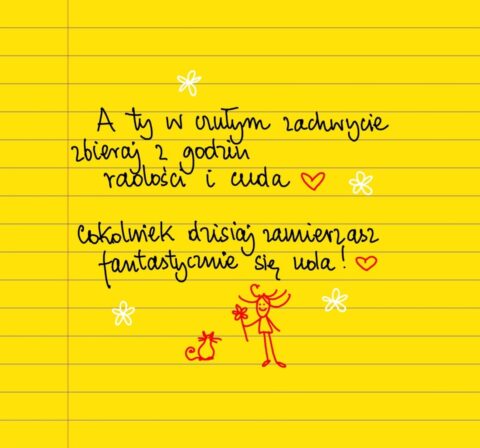 A ty w czułym zachwycie
zbieraj z godzin
radości i cuda
cokolwiek dzisiaj zamierzasz
fantastycznie się uda!